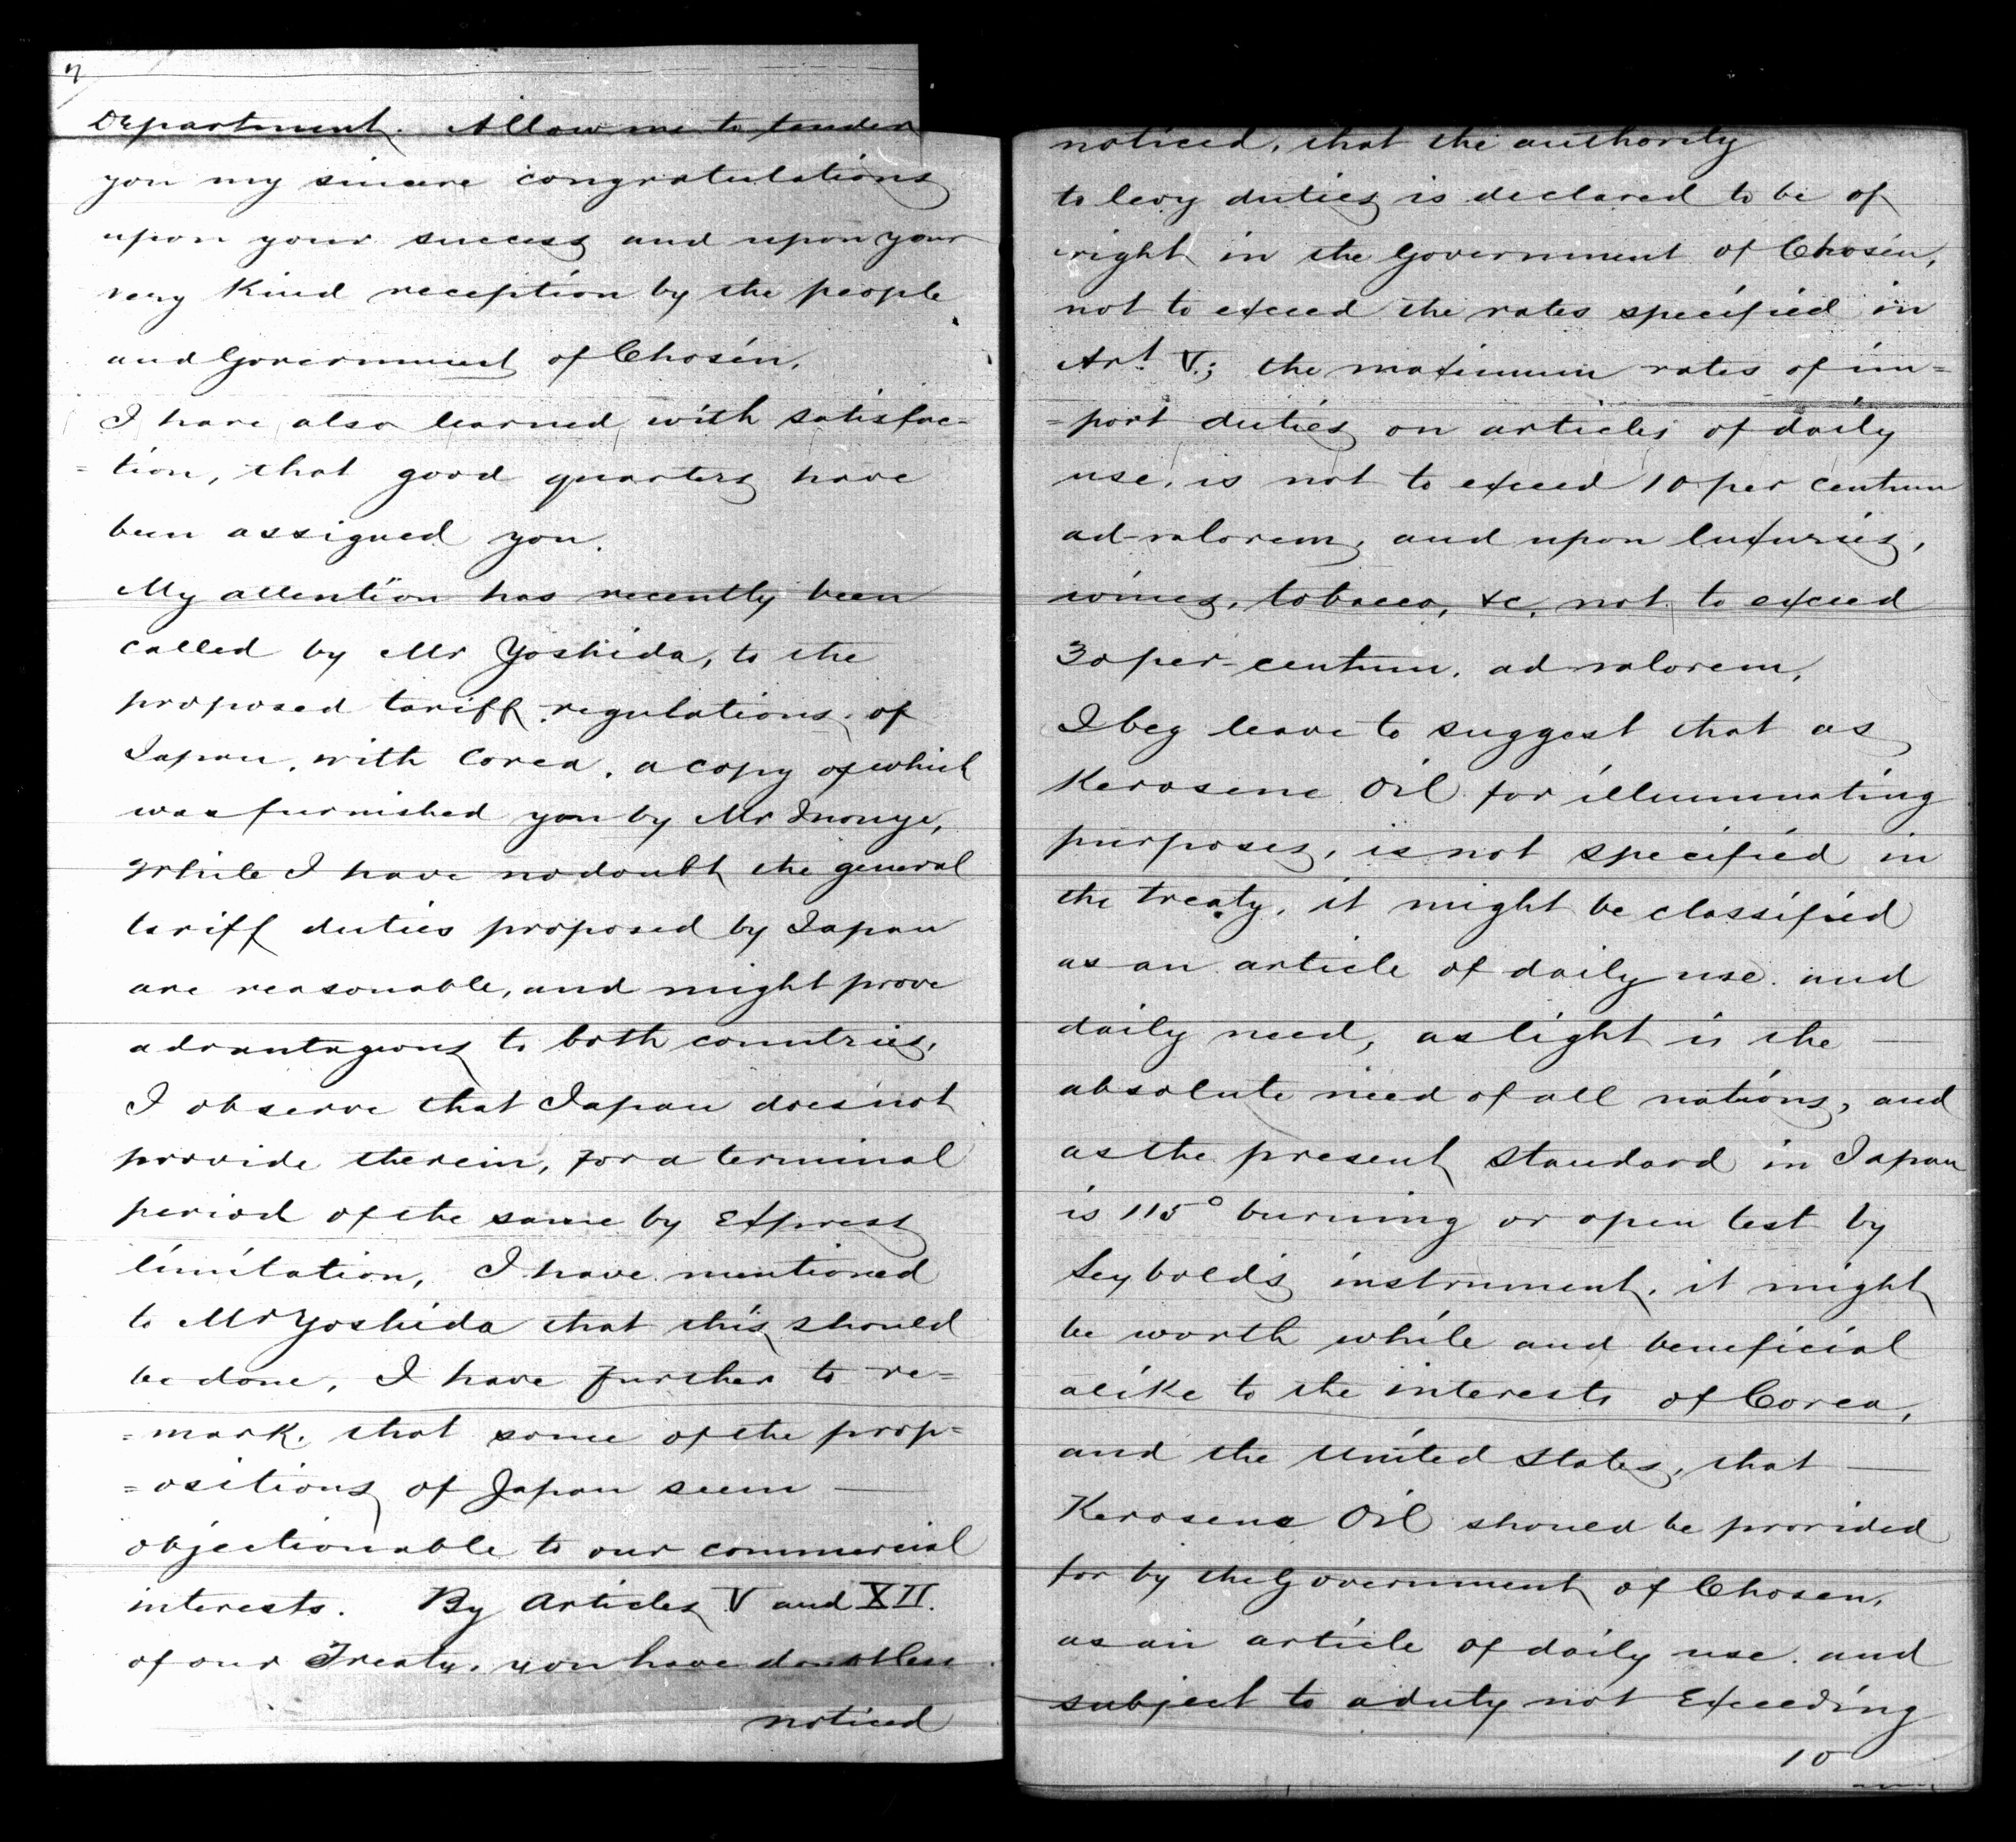 7
Department. Allow me to tender
you my sincere congratulations
upon your success and upon your
very kind reception by the people
and Government of Chosén.
I have also learned with satisfac=
=tion, that good quarters have
been assigned you.
My attention has recently been
called by Mr Yoshida, to the
proposed tariff regulations of
Japan, with Corea, a copy of which
was furnished you by Mr Inouye,
While I have no doubt the general
tariff duties proposed by Japan
are reasonable, and might prove
advantageous to both countries,
I observe that Japan does not
provide therein, for a terminal
period of the same by Express
limitation, I have mentioned
to Mr Yoshida that this should
be done, I have further to re=
=mark, that some of the prop=
=ositions of Japan seem —
objectionable to our commercial
interests. By Articles V and XII.
of our Treaty, you have doubtless
noticed
noticed, that the authority
to levy duties is declared to be of
right in the Government of Chosén,
not to exceed the rates specified in
Art. V.; the maximum rates of im=
=port duties on articles of daily
use, is not to exceed 10 per centum
ad-valorem, and upon luxuries,
wines, tobacco, &c, not to exceed
30 per-centum, ad valorem,
I beg leave to suggest that as
Kerosene Oil for illuminating
purposes, is not specified in
the treaty, it might be classified
as an article of daily use and
daily need, as light is the —
absolute need of all nations, and
as the present standard in Japan
is 115° burning or open test by
Seybold's instrument, it might
be worth while and beneficial
alike to the interests of Corea,
and the United States, that —
Kerosene Oil should be provided
for by the Government of Chosen,
as an article of daily use and
subject to a duty not Exceeding
10